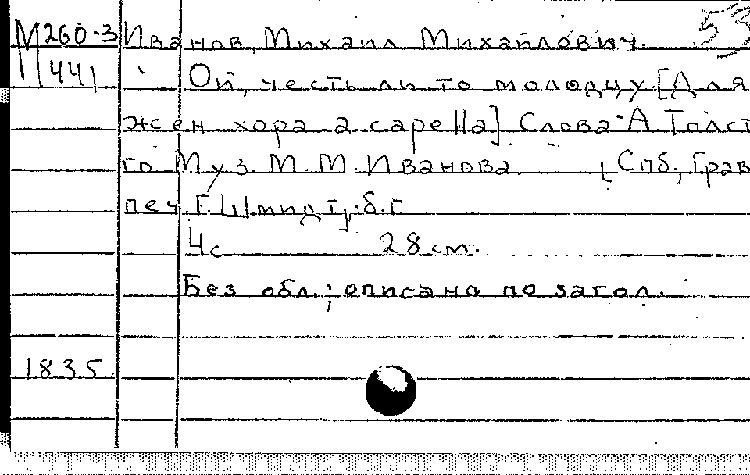 М260-3 Иванов, Михаил Михайлович. 53
М441 Ой, честь ли то молодцу [Для
жен хора a capella] Слова А Толст
го Муз. М. М Иванова Спб, Грав
печ Г. Шмидт, б. г
4с 28 см.
Без обл.; описано по загол.
1835